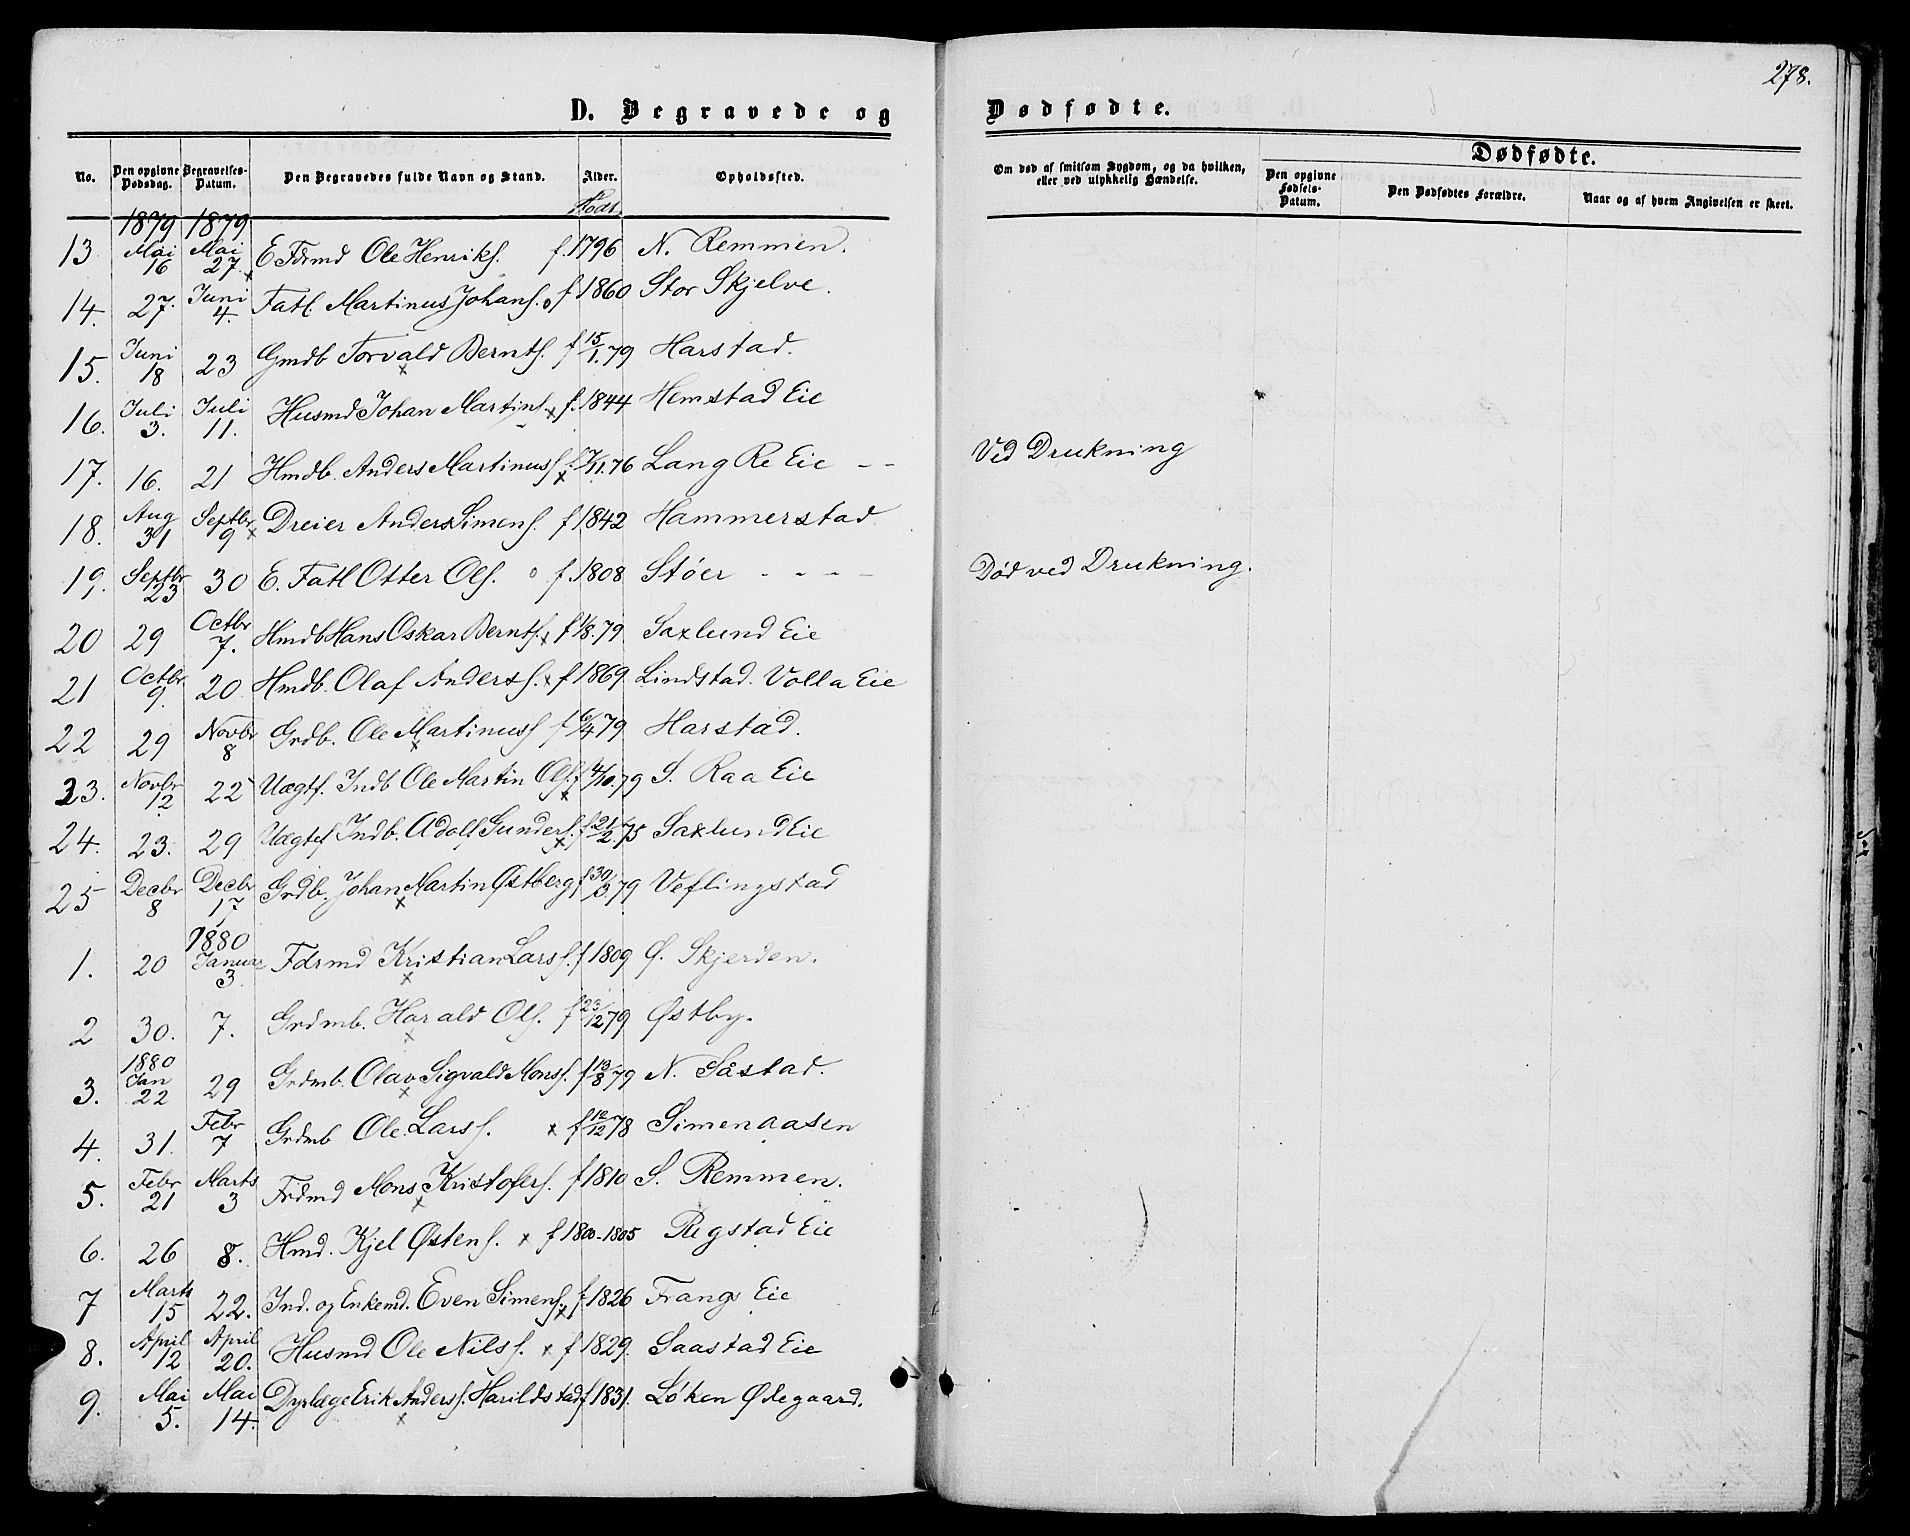 278.
D. Begravede og Dødfødte.
No. Den opgivne Dødsdag. Begravelses-Datum. Den Begravedes fulde Navn og Stand. Alder. Opholdssted. Om død af smitsom Sygdom, og da hvilken, eller ved ulykkelig Hændelse. Dødfødte.
Den opgivne Fødsels-Datum. Den Dødfødtes Forældre. Naar og af hvem Angivelsen er skeet.
Født.
1879 1879
13 Mai 16 Mai 27 x E Fdrmd Ole Henriks. f. 1796 N. Remmen.
14. 27. Juni 4. Fatl. Martinus Johans. o f 1860 Stor Skjelve.
15. Juni 18 23 Gmdb Torvald Bernts. x f 15/1.79 Harstad.
16. Juli 3. Juli 11. Husmd Johan Martins x f. 1844 Hemstad Eie
17. 16. 21 Hmdb. Anders Martinuss x f. 7/11.76 Lang Re Eie - - Ved Drukning
18. Aug 31 Septbr 9 x Dreier Anders Simens. f 1842 Hammerstad
19. Septbr 23 30 E. Fatl Otter Ols. o f. 1808 Støer - - - Død ved Drukning.
20 29 Octbr 7. Hmdb Hans Oskar Bernts. x f 1/8.79. Saxlund Eie
21 Octbr 9. 20 Hmdb. Olaf Anders. x f 1869. Lindstad. Volla Eie
22 29 Novbr 8 Grdb. Ole Martinuss x f 6/4 79 Harstad.
23. Novbr 12 22 Uægtf. Indb Ole Martin Ols. x f 4/10.79 S. Raa Eie
24. 23. 29 Uægtef Indb. Adolf Gunders. x f 21/2.75 Saxlund Eie
25 Decbr 8 Decbr 17 Grdb. Johan Martin Østberg x f 30/3.79 Veflingstad
1880
1. 20 Januar 3. Fdrmd Kristian Larss. x f 1809 Ø. Skjerden.
2 30. 7. Grdmb. Harald Ols. x f 23/12 79 Østby.
1880
3. Jan 22 29 Grdmb. Olav Sigvald Mons. x f 13/8 79 N. Såstad.
4. 31. Febr 7 Grdmb Ole Larss. x f 12/12 78 Simenaasen
5. Febr 21 Marts 3 Frdmd Mons Kristofers. x f 1810 S. Remmen.
6. 26 8. Hmd. Kjel Østens. x f 1800-1805 Regstad Eie
7 Marts 15 22. Ind. og Enkemd. Even Simens x f 1826 Frangs Eie
8. April 12 April 20. Husmd Ole Nilss. x f 1829. Saastad Eie
9. Mai 5. Mai 14. Dyrlæge Erik Anderss. Harildstad x f 1831. Løken Ødegaard.